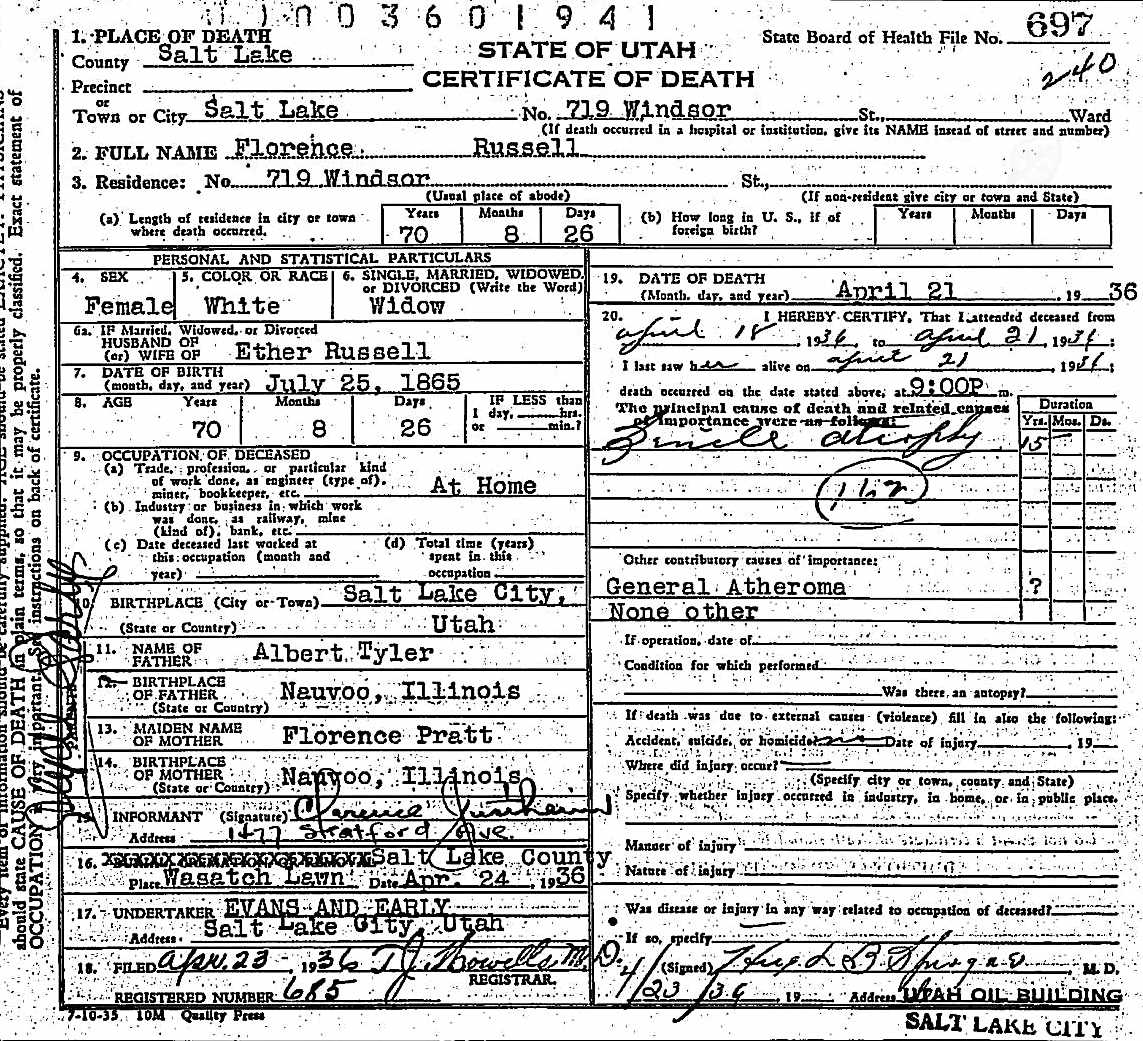 1003601941
1. PLACE OF DEATH
County Salt Lake
Precinct
or
Town or City Salt Lake No. 719 Windsor St., Ward
(If death occurred in a hospital or institution, give its NAME instead of street and number)
STATE OF UTAH
CERTIFICATE OF DEATH
State Board of Health File No. 697
240
2. FULL NAME Florence Russell
3. Residence: No. 719 Windsor St.,
(Usual place of abode) (If non-resident give city or town and State)
(a) Length of residence in city or town where death occurred. Years 70 Months 8 Days 26
(b) How long in U. S., if of foreign birth? Years Months Days
PERSONAL AND STATISTICAL PARTICULARS
4. SEX Female
5. COLOR OR RACE White
6. SINGLE, MARRIED, WIDOWED, or DIVORCED (Write the Word) Widow
6a. IF Married, Widowed, or Divorced
HUSBAND OF
(or) WIFE OF Ether Russell
7. DATE OF BIRTH
(month, day, and year) July 25, 1865
8. AGE Years 70 Months 8 Days 26
IF LESS than
1 day, hrs.
or min.?
9. OCCUPATION OF DECEASED
(a) Trade, profession, or particular kind
of work done, as engineer (type of),
miner, bookkeeper, etc. At Home
(b) Industry or business in which work
was done, as railway, mine
(kind of), bank, etc.
(c) Date deceased last worked at
this occupation (month and
year)
(d) Total time (years)
spent in this
occupation
10. BIRTHPLACE (City or Town) Salt Lake City,
(State or Country) Utah
11. NAME OF
FATHER Albert Tyler
12. BIRTHPLACE
OF FATHER Nauvoo, Illinois
(State or Country)
13. MAIDEN NAME
OF MOTHER Florence Pratt
14. BIRTHPLACE
OF MOTHER Nauvoo, Illinois
(State or Country)
15. INFORMANT (Signature) Clarence
Address 1477 Stratford Ave.
16. Salt Lake County
Place Wasatch Lawn Date Apr. 24, 1936
17. UNDERTAKER EVANS AND EARLY
Address Salt Lake City, Utah
18. FILED Apr. 23 1936 T J Howells M.D.
REGISTRAR.
REGISTERED NUMBER 685
7-10-35 10M Quality Press
19. DATE OF DEATH
(Month, day, and year) April 21, 1936
20. I HEREBY CERTIFY, That I attended deceased from
April 18, 1936, to April 21, 1936;
I last saw her alive on April 21, 1936;
death occurred on the date stated above, at 9:00P m.
The principal cause of death and related causes
of importance were as follows:
Duration
Yrs. Mos. Ds.
Senile atrophy 15
Other contributory causes of importance:
General Atheroma ?
None other
If operation, date of
Condition for which performed
Was there an autopsy?
If death was due to external causes (violence) fill in also the following:
Accident, suicide, or homicide no Date of injury 19
Where did injury occur?
(Specify city or town, county and State)
Specify whether injury occurred in industry, in home, or in public place.
Manner of injury
Nature of injury
Was disease or injury in any way related to occupation of deceased?
If so, specify
(Signed) Hugh B M. D.
4/23/36 19 Address UTAH OIL BUILDING
SALT LAKE CITY
should state CAUSE OF DEATH in plain terms, so that it may be properly classified. Exact statement of
OCCUPATION is very important. See instructions on back of certificate.